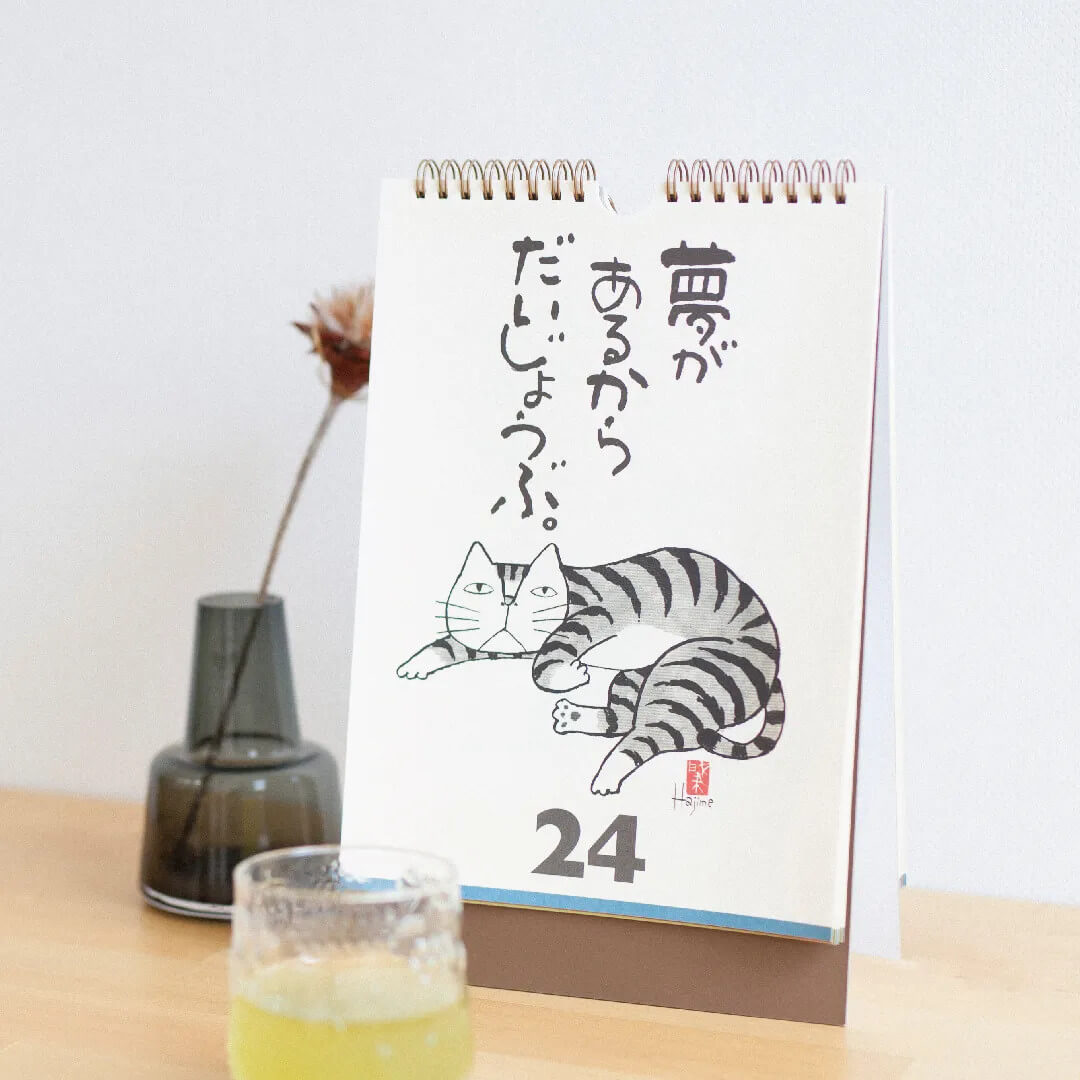 夢が
あるから
だいじょうぶ。
Hajime
24